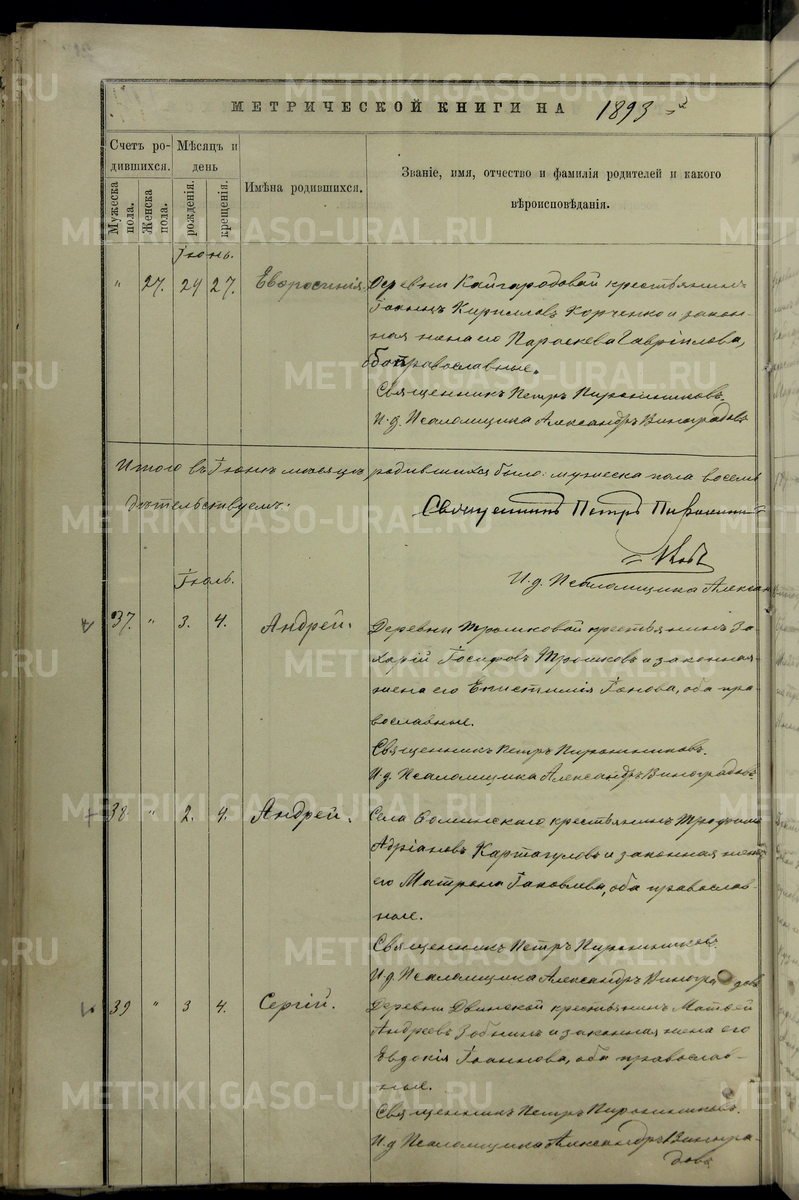 МЕТРИЧЕСКОЙ КНИГИ НА 1893
Счетъ родившихся.
Мѣсяцъ и день
Имёна родившихся.
Званіе, имя, отчество и фамилія родителей и какого вѣроисповѣданія.
Мужеска пола.
Женска пола.
рожденія.
крещенія.
Іюнь.
" 27. 24 27. Евфросинія
Деревни Кайгородовой крестьянинъ
Іоаннъ Кирилловъ Корченко и закон-
ная жена его Параскева Гавріилова,
оба православные.
Священникъ Петръ
И. д. Псаломщика Александръ Виноградовъ
Итого въ Іюнѣ мѣсяцѣ родившихся было: мужеска пола восемь
дѣтельствуемъ.
Священникъ Петръ
И. д. Псаломщика Алексан
Іюль.
37. " 3. 4. Андрей.
Деревни Трошковой крестьянинъ За-
харій Іосифовъ Трошковъ и законная
жена его Епистимія Іонова, оба пра-
вославные.
Священникъ Петръ
И. д. Псаломщика Александръ Виноградовъ
38. " 2. 4. Андрей.
Села крестьянинъ Трофимъ
Адріановъ и законная жена
его Матрона Іаковлева, оба православ-
ные.
Священникъ Петръ
И. д. Псаломщика Александръ Виноградовъ
39 " 3 4. Сергій.
Деревни Двинской крестьянинъ Матвей
Андреевъ Зобнинъ и законная жена его
Евдокія Іоаннова, оба православ-
ные.
Священникъ Петръ
И. д. Псаломщика Александръ Виногра-
довъ
METRIKI.GASO-URAL.RU